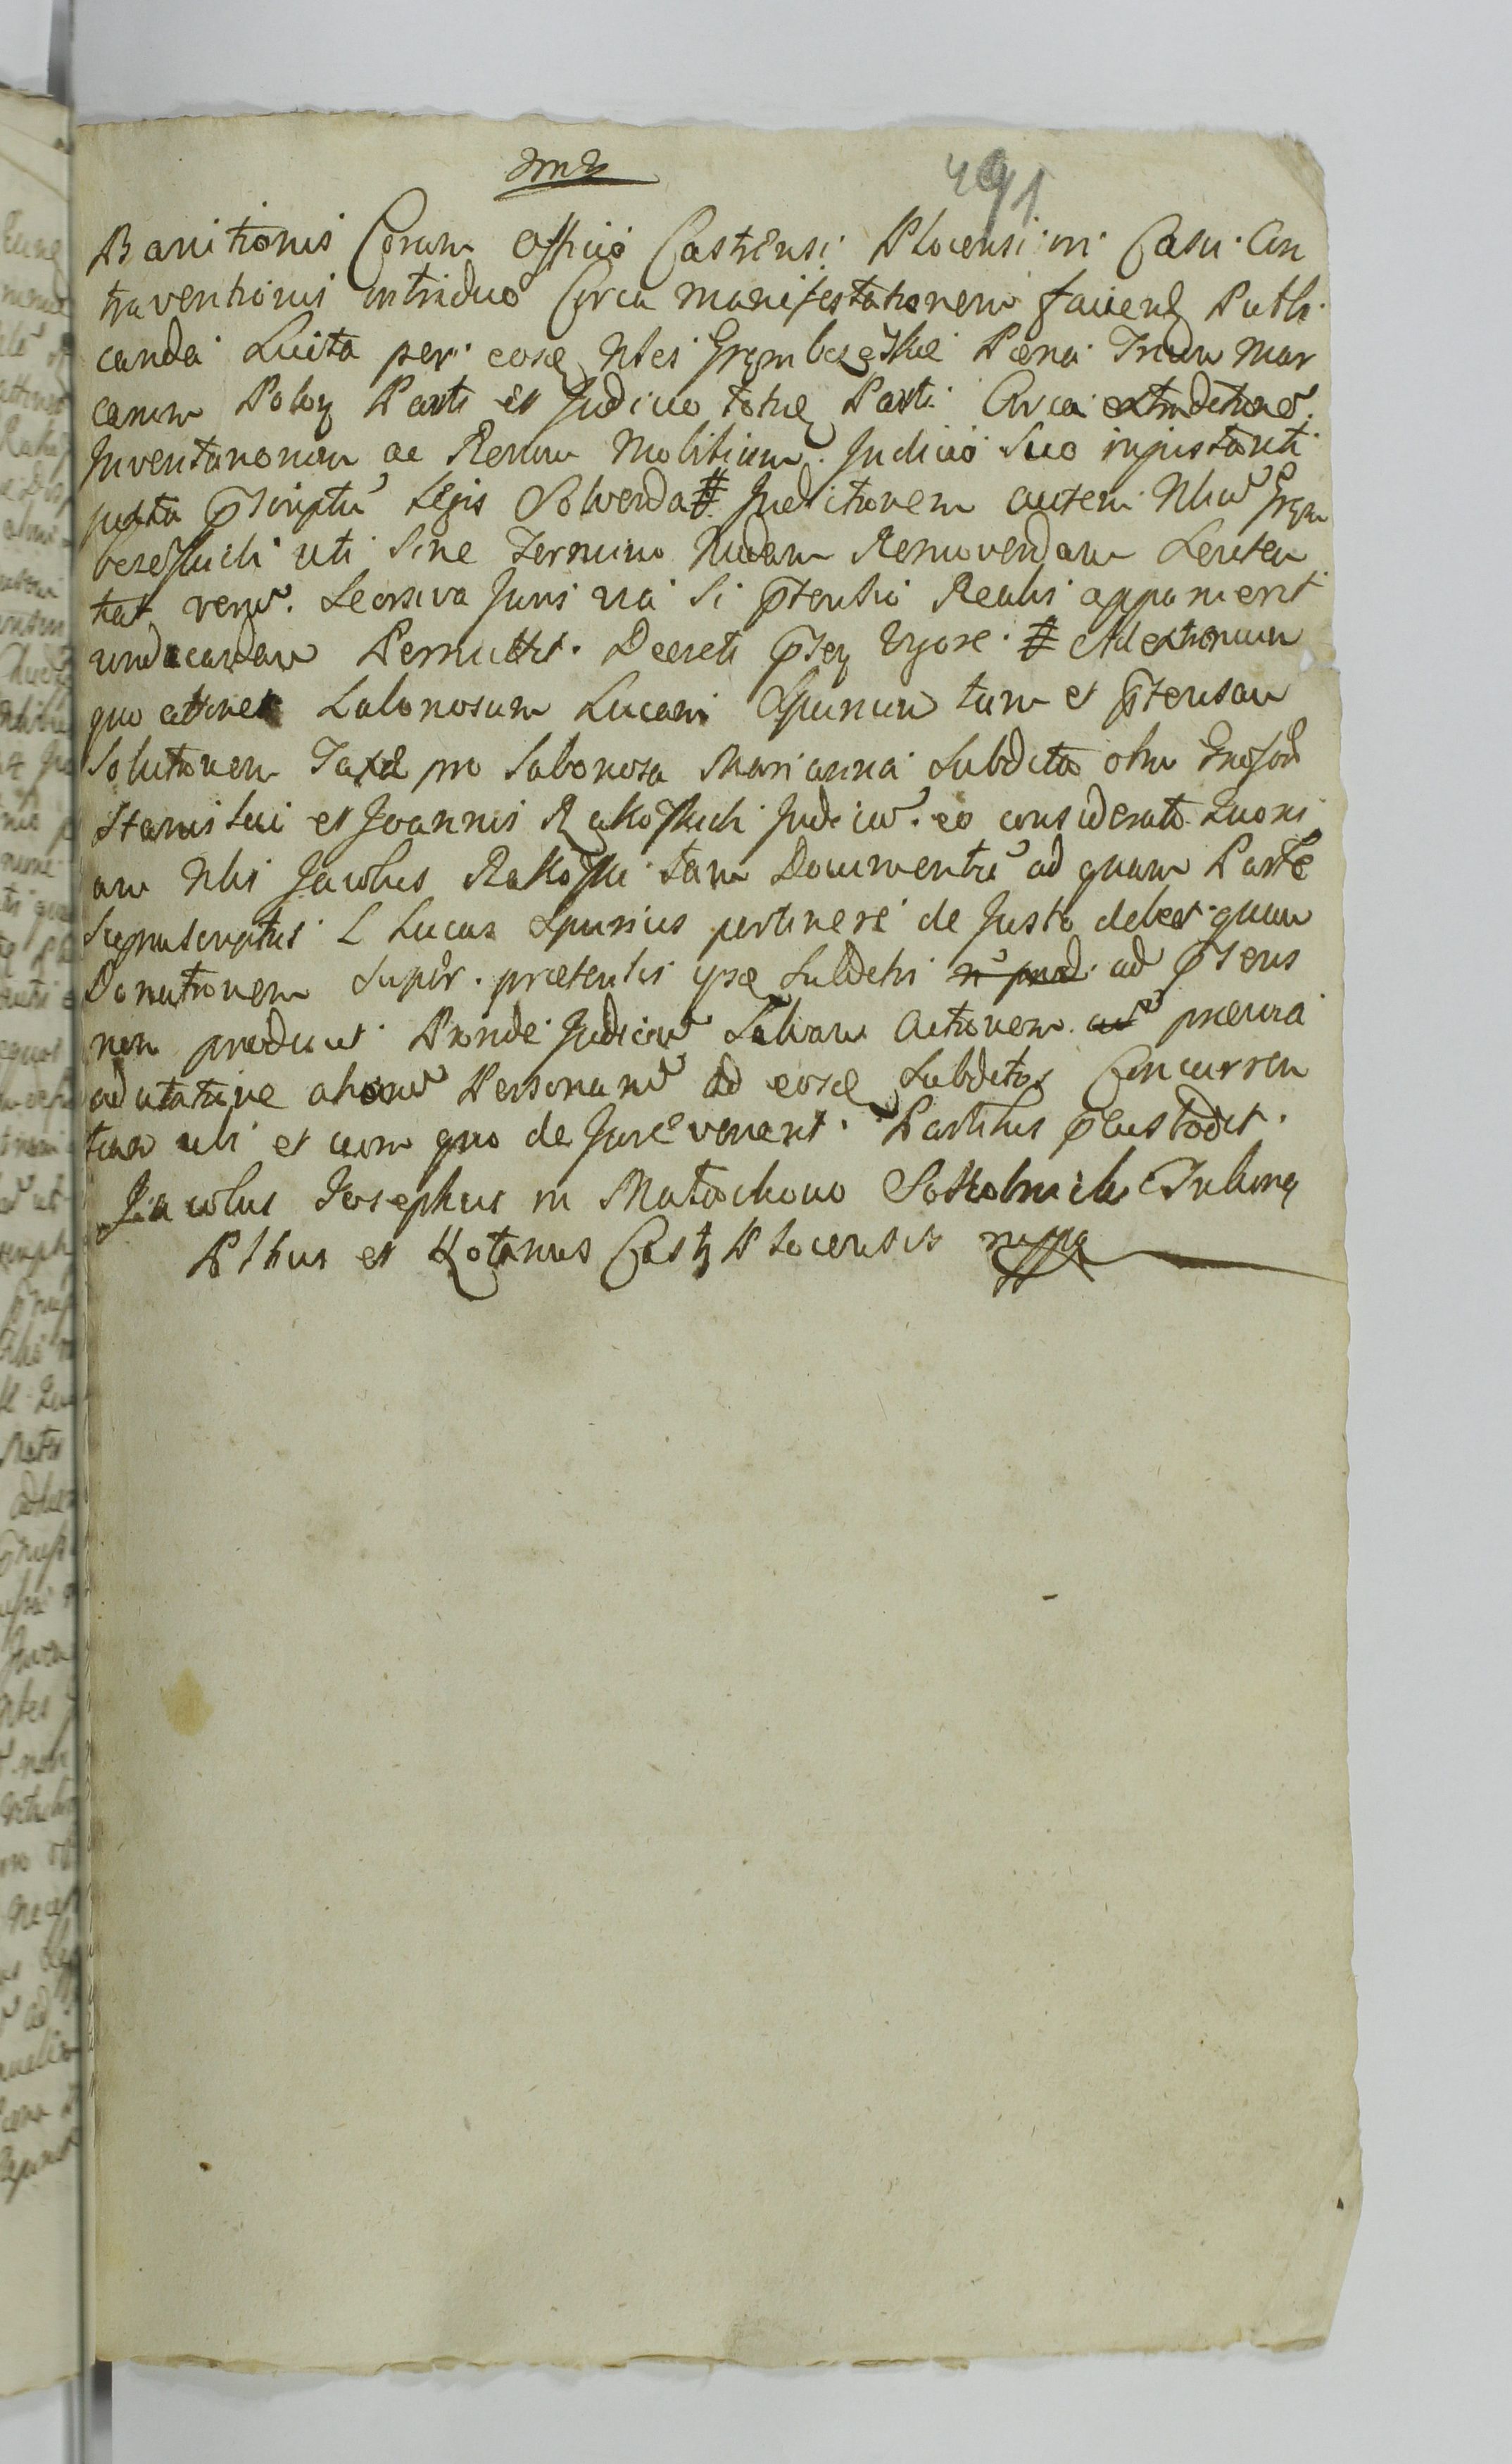 491
Banitionis Coram Officio Castrensi Plocensi in Casu Con
traventionis intriduo Circa manifestationem faciend Publi
canda Luita per eosd Nbes Grembczewskie Pæna Trium Mar
carum Polon Parti et Judicio totid Parti Circa extraditione
Inventariorum ac Rerum Mobilium Judicio Suo in instanti
juxta pscriptu Legis Solvenda # Inditionem autem Nbiu Grem
bczewskich uti Sine Termino Nudam Removendam Senten
tiat verum. Seorsiva Juris via Si ptensio Realis apparuerit
vindicandam Permittit. Decreti ptes vigore # Ad extremum
quo attinet Laboriosum Lucam Spurium tum et ptensam
Solutionem Taxæ pro Laboriosa Marianna Subdita olim Gnosor
Stanislai et Joannis Rakowskich Judiciu eo considerato Quoni
am Nblis Jacobus Rakowski tam Documentu ad quam Parte
Suprascriptus L Lucas Spurius pertinere de Justo debet quam
Donationem Super prætensis ipse Subditis ad ptens
non producit Proinde Judiciu Salvam Actionem prævia
adcitatione aliaru Personaru ad eosd Subditos Concurren
tium ubi et cum quo de Jure venerit. Partibus pcustodit.
Jacobus Josephus in Mutochowo Sokolnicki Tribun
Plbus et Notarius Castr Plocensis mppa